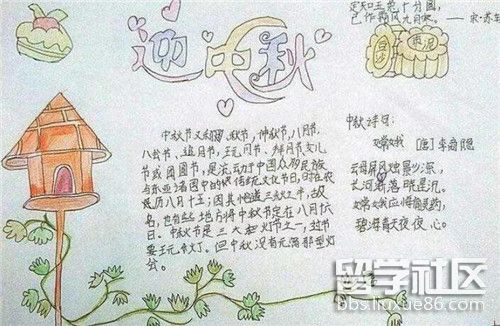 定知玉兔十分圆,
已作霜风九月寒。——宋·苏轼
迎中秋
豆沙
枣泥
中秋节又称月夕、秋节、仲秋节、八月节、
八会节、追月节、玩月节、拜月节、女儿
节或团圆节,是流行于中国众多民族
与东亚诸国中的传统文化节日,时在农
历八月十五;因其恰值三秋之半,故
名,也有些地方将中秋节定在八月十六
日。中秋节是三大灯节之一,过节
要玩花灯。但中秋没有元宵那型灯
会。
中秋诗句:
嫦娥 [唐] 李商隐
云母屏风烛影深,
长河渐落晓星沉。
嫦娥应悔偷灵药,
碧海青天夜夜心。
留学社区
bbs.liuxue86.com